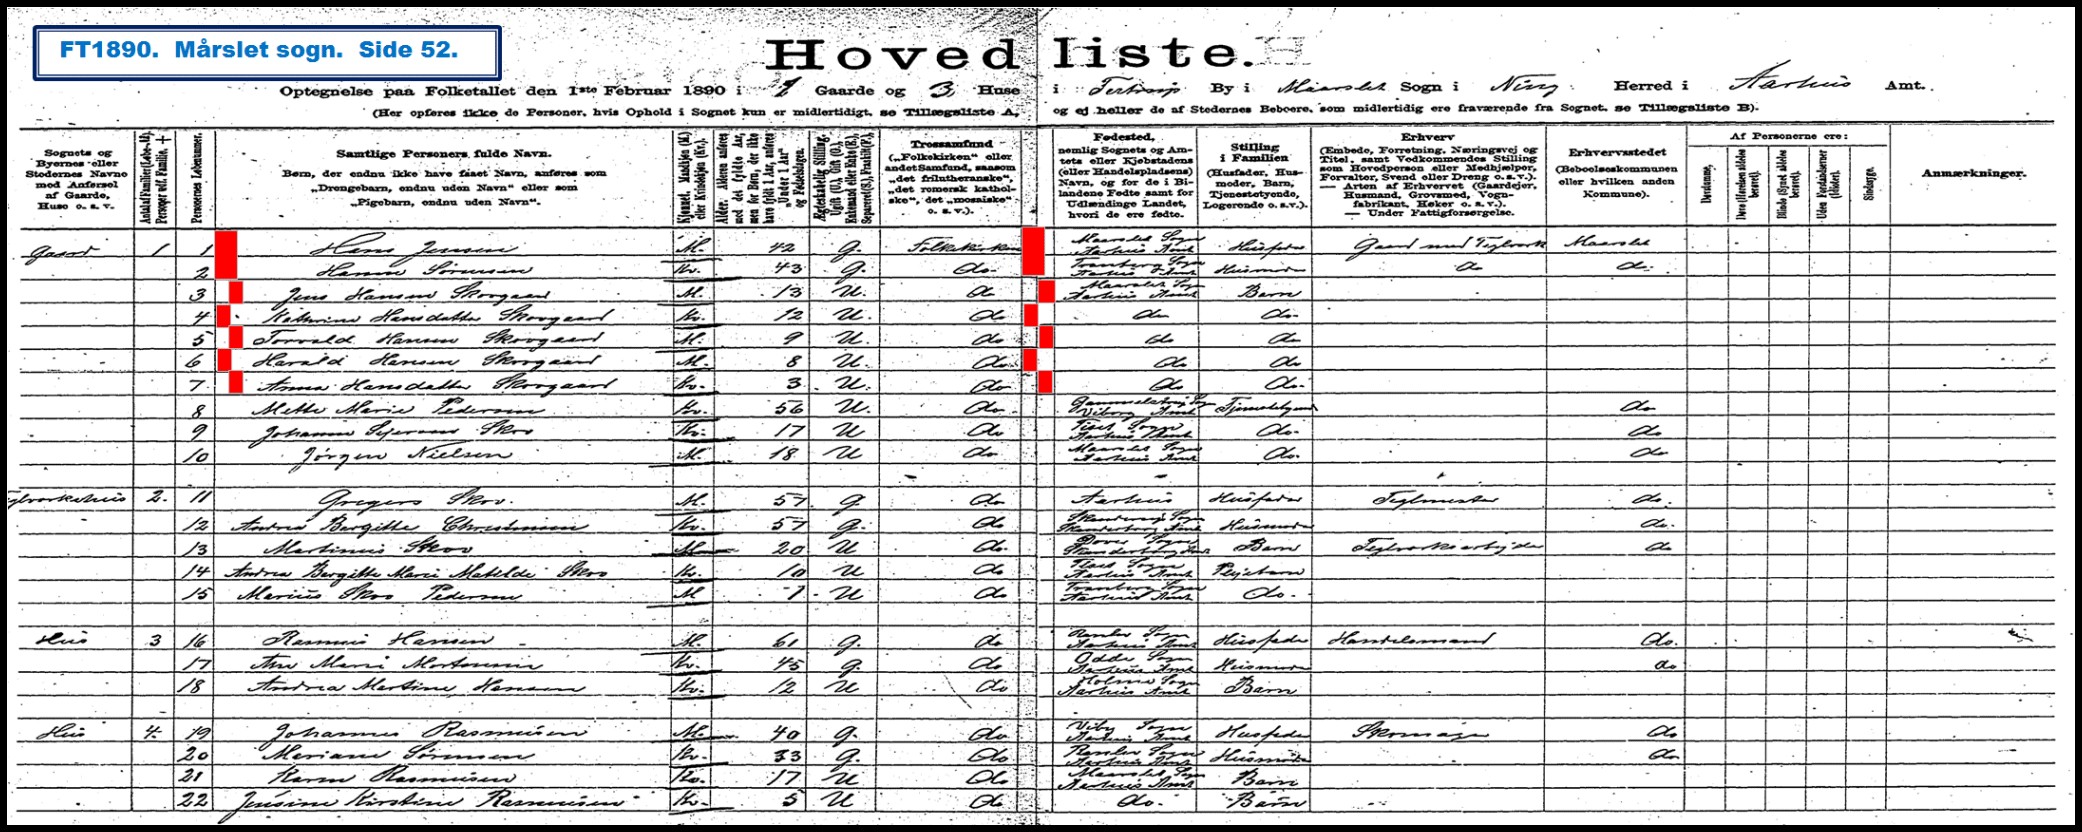 FT1890. Mårslet sogn. Side 52.
Hovedliste.
Optegnelse paa Folketallet den 1ste Februar 1890 i 1 Gaarde og 3 Huse i Testrup By i Maarslet Sogn i Ning Herred i Aarhus Amt.
(Her opføres ikke de Personer, hvis Ophold i Sognet kun er midlertidigt, se Tillægsliste A, og ej heller de af Stedernes Beboere, som midlertidig ere fraværende fra Sognet, se Tillægsliste B).
Sognets og Byernes eller Stedernes Navne med Anførsel af Gaarde, Huse o. s. v.
Personernes Løbenummer.
Samtlige Personers fulde Navn.
Børn, der endnu ikke have faaet Navn, anføres som „Drengebarn, endnu uden Navn“ eller som „Pigebarn, endnu uden Navn“.
Kjønnet. Mandkjøn (M.) eller Kvindekjøn (Kv.).
Trossamfund („Folkekirken“ eller andet Samfund, saasom „det frilutheranske“, „det romersk katholske“, det „mosaiske“ o. s. v.).
Fødested, nemlig Sognets og Amtets eller Kjøbstadens (eller Handelspladsens) Navn, og for de i Bilandene Fødte samt for Udlændinge Landet, hvori de ere fødte.
Stilling i Familien (Husfader, Husmoder, Barn, Tjenestetyende, Logerende o. s. v.).
Erhverv (Embede, Forretning, Næringsvej og Titel, samt Vedkommendes Stilling som Hovedperson eller Medhjælper, Forvalter, Svend eller Dreng o. s. v.). — Arten af Erhvervet (Gaardejer, Husmand, Grovsmed, Vognfabrikant, Høker o. s. v.). — Under Fattigforsørgelse.
Erhvervsstedet (Beboelseskommunen eller hvilken anden Kommune).
Af Personerne ere:
Døvstumme,
Døve (Hørelsen aldeles berøvet).
Blinde (Synet aldeles berøvet).
Uden Forstandsevner (Idioter).
Sindssyge.
Anmærkninger.
Gaard 1 1 Hans Jensen M. 42 G. Folkekirken Maarslet Sogn Aarhus Amt Husfader Gaard med Teglværk Maarslet
2 Hanne Sørensen Kv. 43 G. do. Tranbjerg Sogn Aarhus Amt Husmoder do do.
3 Jens Hansen Skovgaard M. 13 U. do Maarslet Sogn Aarhus Amt Barn
4 Kathrine Hansdatter Skovgaard Kv. 12 U. do do do.
5 Torvald Hansen Skovgaard M. 9 U. do do do
6 Harald Hansen Skovgaard M. 8 U. do. do do
7 Anna Hansdatter Skovgaard Kv. 3 U. do do do.
8 Mette Marie Pedersen Kv. 56 U. do. Sogn Viborg Amt do
9 Johanne Skov Kv. 17 U do Tiset Sogn Aarhus Amt do. do
10 Jørgen Nielsen M. 18 U do Maarslet Sogn Aarhus Amt do. do
Teglværkshus 2. 11 Gregers Skov. M. 57 g. do. Aarhus Husfader Teglmester do.
12 Andrea Bergitte Christensen Kv. 57 g. do Skanderup Sogn Skanderborg Amt Husmoder do.
13 Martinus Skov M 20 U do. Dover Sogn Skanderborg Amt Barn Teglværksarbejder do
14 Andrea Bergitte Marie Matilde Skov Kv. 10 U do Sogn Aarhus Amt Plejebarn
15 Marius Skov Pedersen M 7 U do Tranbjerg Sogn Aarhus Amt do.
Hus 3 16 Rasmus Hansen M. 61 g. do Sogn Aarhus Amt Husfader Handelsmand do.
17 Ane Marie Mortensen Kv. 45 g. do Odder Sogn Aarhus Amt Husmoder do
18 Andrea Martine Hansen Kv. 12 U do Holme Sogn Aarhus Amt Barn
Hus 4. 19 Johannes Rasmussen M. 40 g. do Viby Sogn Aarhus Amt Husfader Skomager do
20 Mariane Sørensen Kv. 33 g. do Sogn Aarhus Amt Husmoder do
21 Karen Rasmussen Kv. 17 U do Maarslet Sogn Aarhus Amt Barn
22 Jensine Kirstine Rasmussen Kv. 5 U do do. Barn